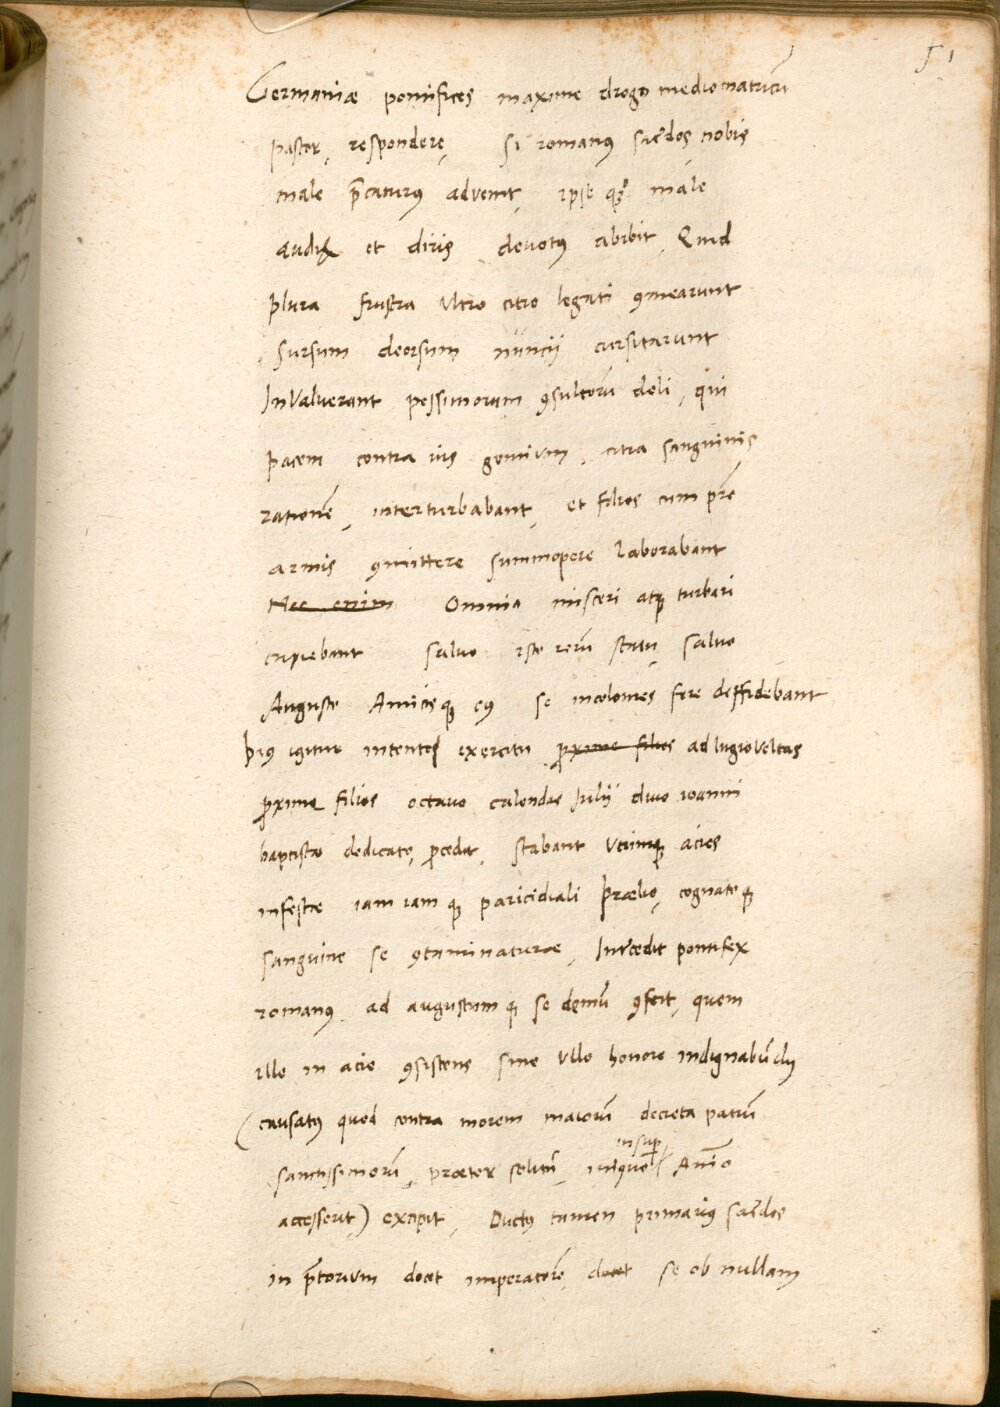 51
Germaniæ pontifices maxime drogo mediomatricū
pastor, respondere, Si romanus sac̄dos nobis
male p̄caturus advenit, ipse qq̧ male
audiet et diris devotus abibit, Quid
plura frustra ultro citro legati ꝯmearunt
sursum deorsum nuncij cursitarunt
Invaluerant pessimorum ꝯsultorū doli, qui
pacem contra ius gentium, citra sanguinis
rationē, interturbabant, et filios cum pr̄e
armis ꝯmittere summopere laborabant
Nec enim Omnia misceri atq̧ turbari
cupiebant salvo isto rerū statu salvo
Augusto Amicisq̧ eius se incolomes fore deffidebant
pius igitur intento exercitu proxime filios ad lugiovoltas
proxime filios octavo calendas Julij divo ioanni
baptistæ dedicato, procedit, stabant utrinq̧ acies
infestæ iam iamq̧ paricidiali prælio, cognatoq̧
sanguine se ꝯtaminaturæ, Int̄cedit pontifex
romanus ad augustumq̧ se demū ꝯfert, quem
ille in acie ꝯsistens sine ullo honore indignabūdus
(causatus quod contra morem maiorū decreta patrū
insup
sanctissimorū, præter solitū, iniquo Anīo
accesserit) excipit, Ductus tamen primarius sac̄dos
in p̄torium docet imperatorē docet se ob nullam